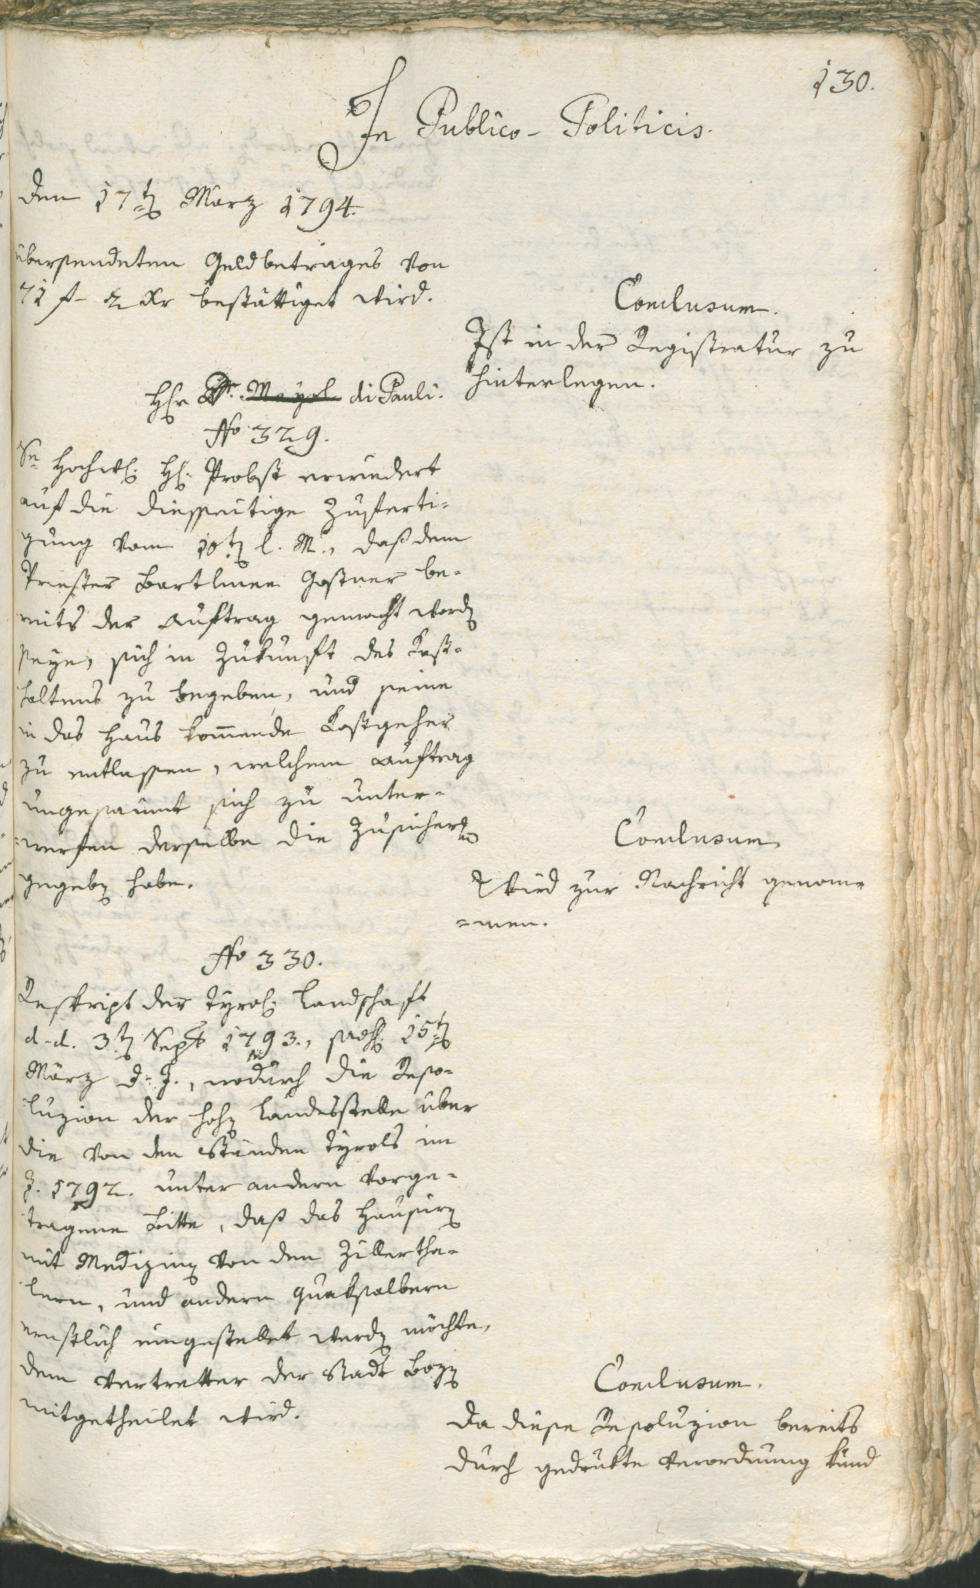 130.
In Publico-Politicis.
den 17t März 1794.
überſendeten Geldbetrages von
71 f- 2 xr beſtättiget wird.
Concluſum.
Iſt in der Regiſtratur zu
hinterlegen.
Hr Dr. Mayrl di Pauli.
No 329.
Se Hochw: H: Probſt erwiedert
auf die dieſſeitige Zuferti-
gung vom 10t l. M., daß dem
Prieſter Bartlmee Goſtner be-
reits der Auftrag gemacht word
ſeye, ſich in Zukunft des Koſt-
haltens zu begeben, und ſeine
in das Haus komende Koſtgeher
zu entlaſſen, welchem Auftrag
ungeſaumt ſich zu unter-
werfen derſelbe die Zuſicherg
gegeb habe.
Concluſum
Wird zur Nachricht genom-
=men.
No 330.
Reſkript der tyrol: Landſchaft
d-d. 3t Sept 1793., 15t
März d: J., wodurch die Reſo-
luzion der hoh Landesſtelle über
die von den Ständen Tyrols im
J. 1792. unter andern vorge-
tragene Bitte, daß das Hauſir
mit Medizin von den Zillertha-
lern, und andern Quakſalbern
ernſtlich eingeſtellet werd möchte,
dem Vertretter der Stadt Boz
mitgetheilet wird.
Concluſum.
Da dieſe Reſoluzion bereits
durch gedrukte Verordnung kund